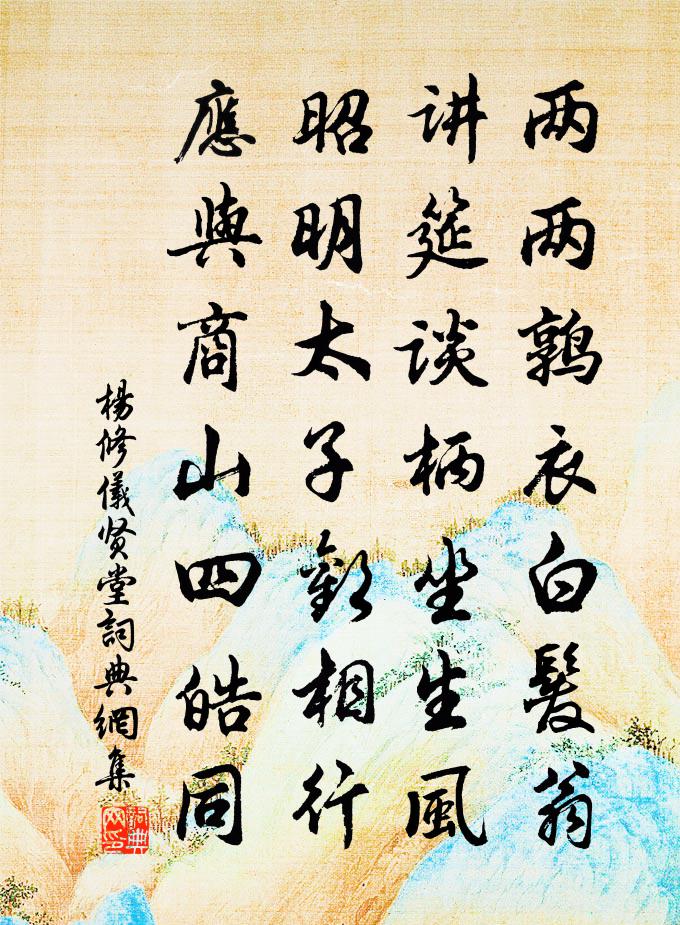 两两鹑衣白髮翁
讲筵谈柄坐生風
昭明太子歡相行
應與商山四皓同
楊修儀贤堂詞典網集
詞典網印